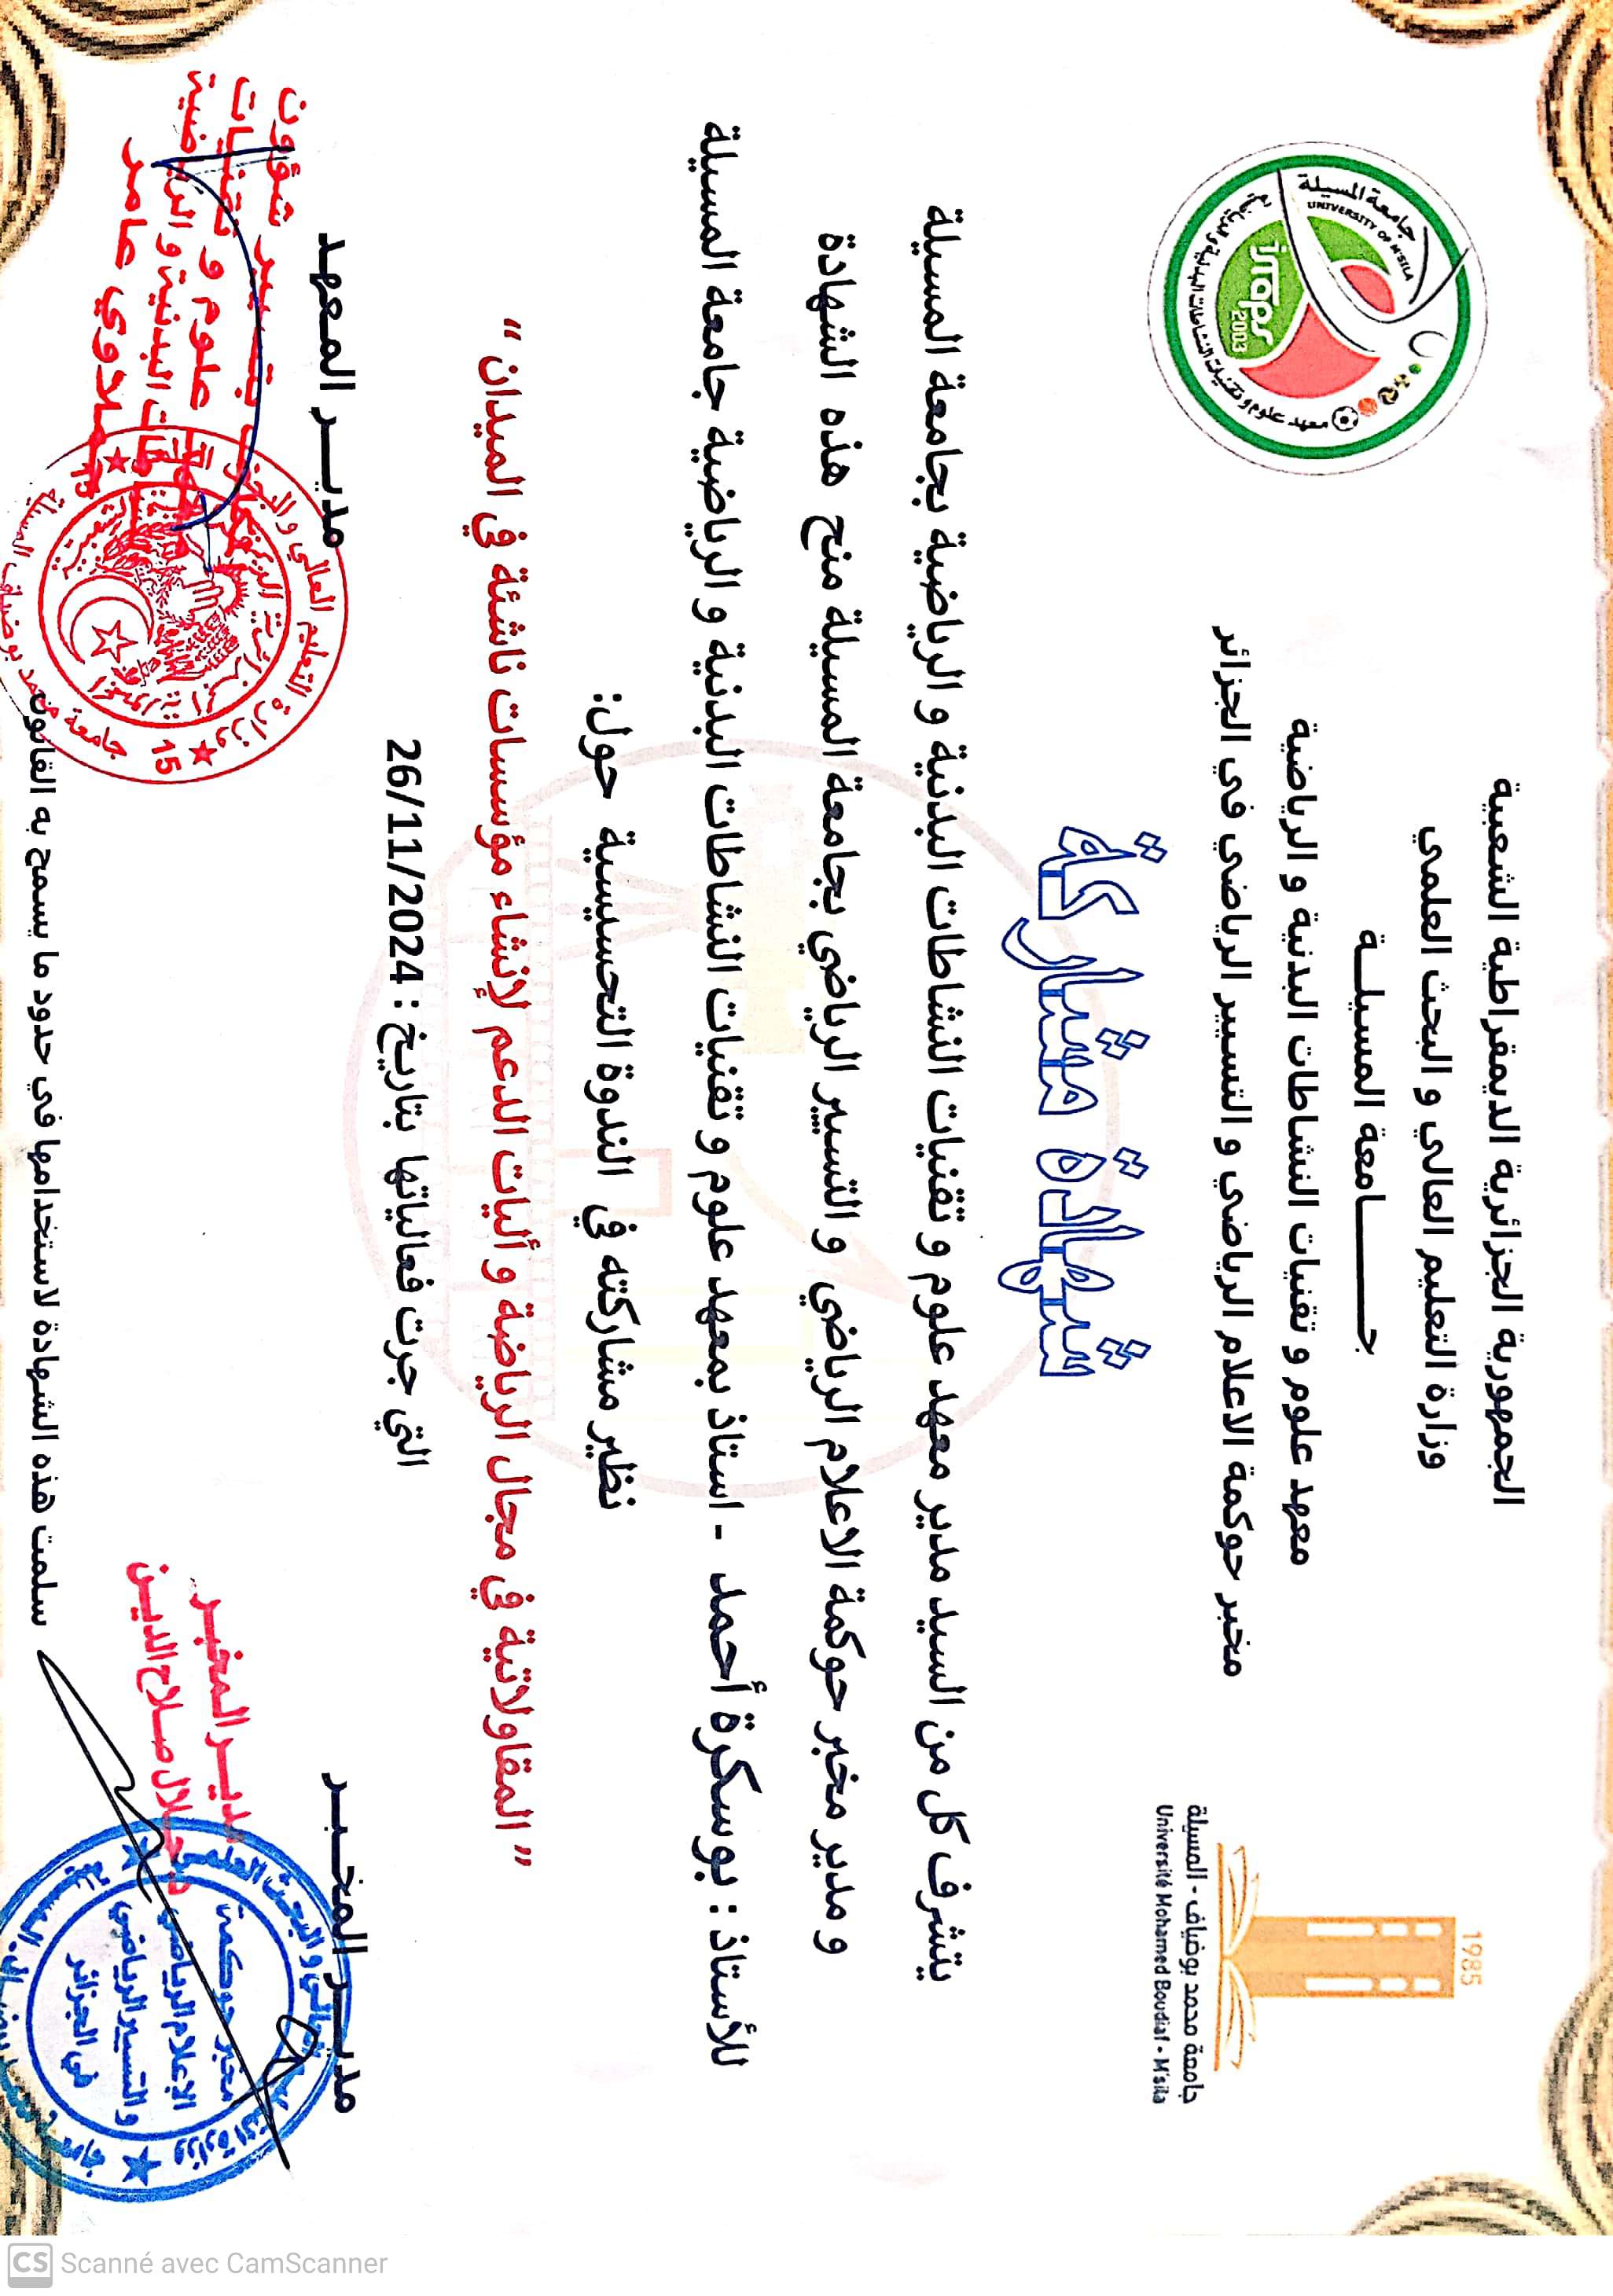 الجمهورية الجزائرية الديمقراطية الشعبية
وزارة التعليم العالي و البحث العلمي
جـــــــامعة المسيلـــة
معهد علوم و تقنيات النشاطات البدنية و الرياضية
مخبر حوكمة الاعلام الرياضي و التسيير الرياضي في الجزائر
1985
جامعة محمد بوضياف - المسيلة
Université Mohamed Boudiaf - M'sila
جامعة المسيلة
UNIVERSITY OF M'SILA
istaps
2003
معهد علوم و تقنيات النشاطات البدنية و الرياضية
شهادة مشاركة
يتشرف كل من السيد مدير معهد علوم و تقنيات النشاطات البدنية و الرياضية بجامعة المسيلة
و مدير مخبر حوكمة الاعلام الرياضي و التسيير الرياضي بجامعة المسيلة منح هذه الشهادة
للأستاذ : بوسكرة أحمد - استاذ بمعهد علوم و تقنيات النشاطات البدنية و الرياضية جامعة المسيلة
نظير مشاركته في الندوة التحسيسية حول:
" المقاولاتية في مجال الرياضة و أليات الدعم لإنشاء مؤسسات ناشئة في الميدان "
التي جرت فعالياتها بتاريخ : 26/11/2024
مديـــر المخبـــر
مديـــر المعهد
مديـر المخبـر
صـلاح الديـن
مخبر حوكمة
الإعلام الرياضي
والتسيير الرياضي
في الجزائر
علوم و تقنيات
البدنية و الرياضية
عامر
15
سلمت هذه الشهادة لاستخدامها في حدود ما يسمح به القانون
CS Scanné avec CamScanner